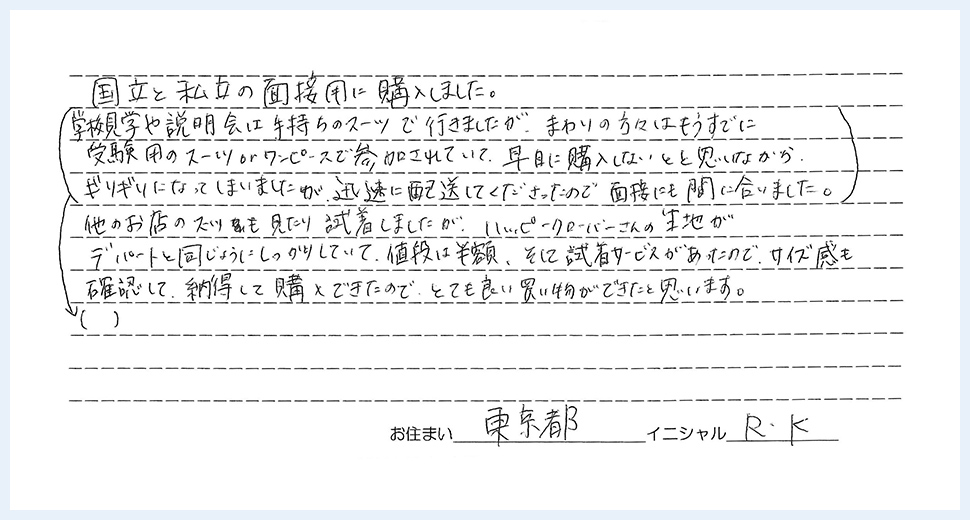 国立と私立の面接用に購入しました。
学校見学や説明会は手持ちのスーツで行きましたが、まわりの方々はもうすでに
受験用のスーツorワンピースで参加されていて、早目に購入しないとと思いながら、
ギリギリになってしまいましたが、迅速に配送してくださったので面接にも間に合いました。
他のお店のスーツも見たり試着しましたが、ハッピークローバーさんの生地が
デパートと同じようにしっかりしていて、値段は半額、そして試着サービスがあったので、サイズ感も
確認して、納得して購入できたので、とても良い買い物ができたと思います。
( )
お住まい 東京都 イニシャル R.K